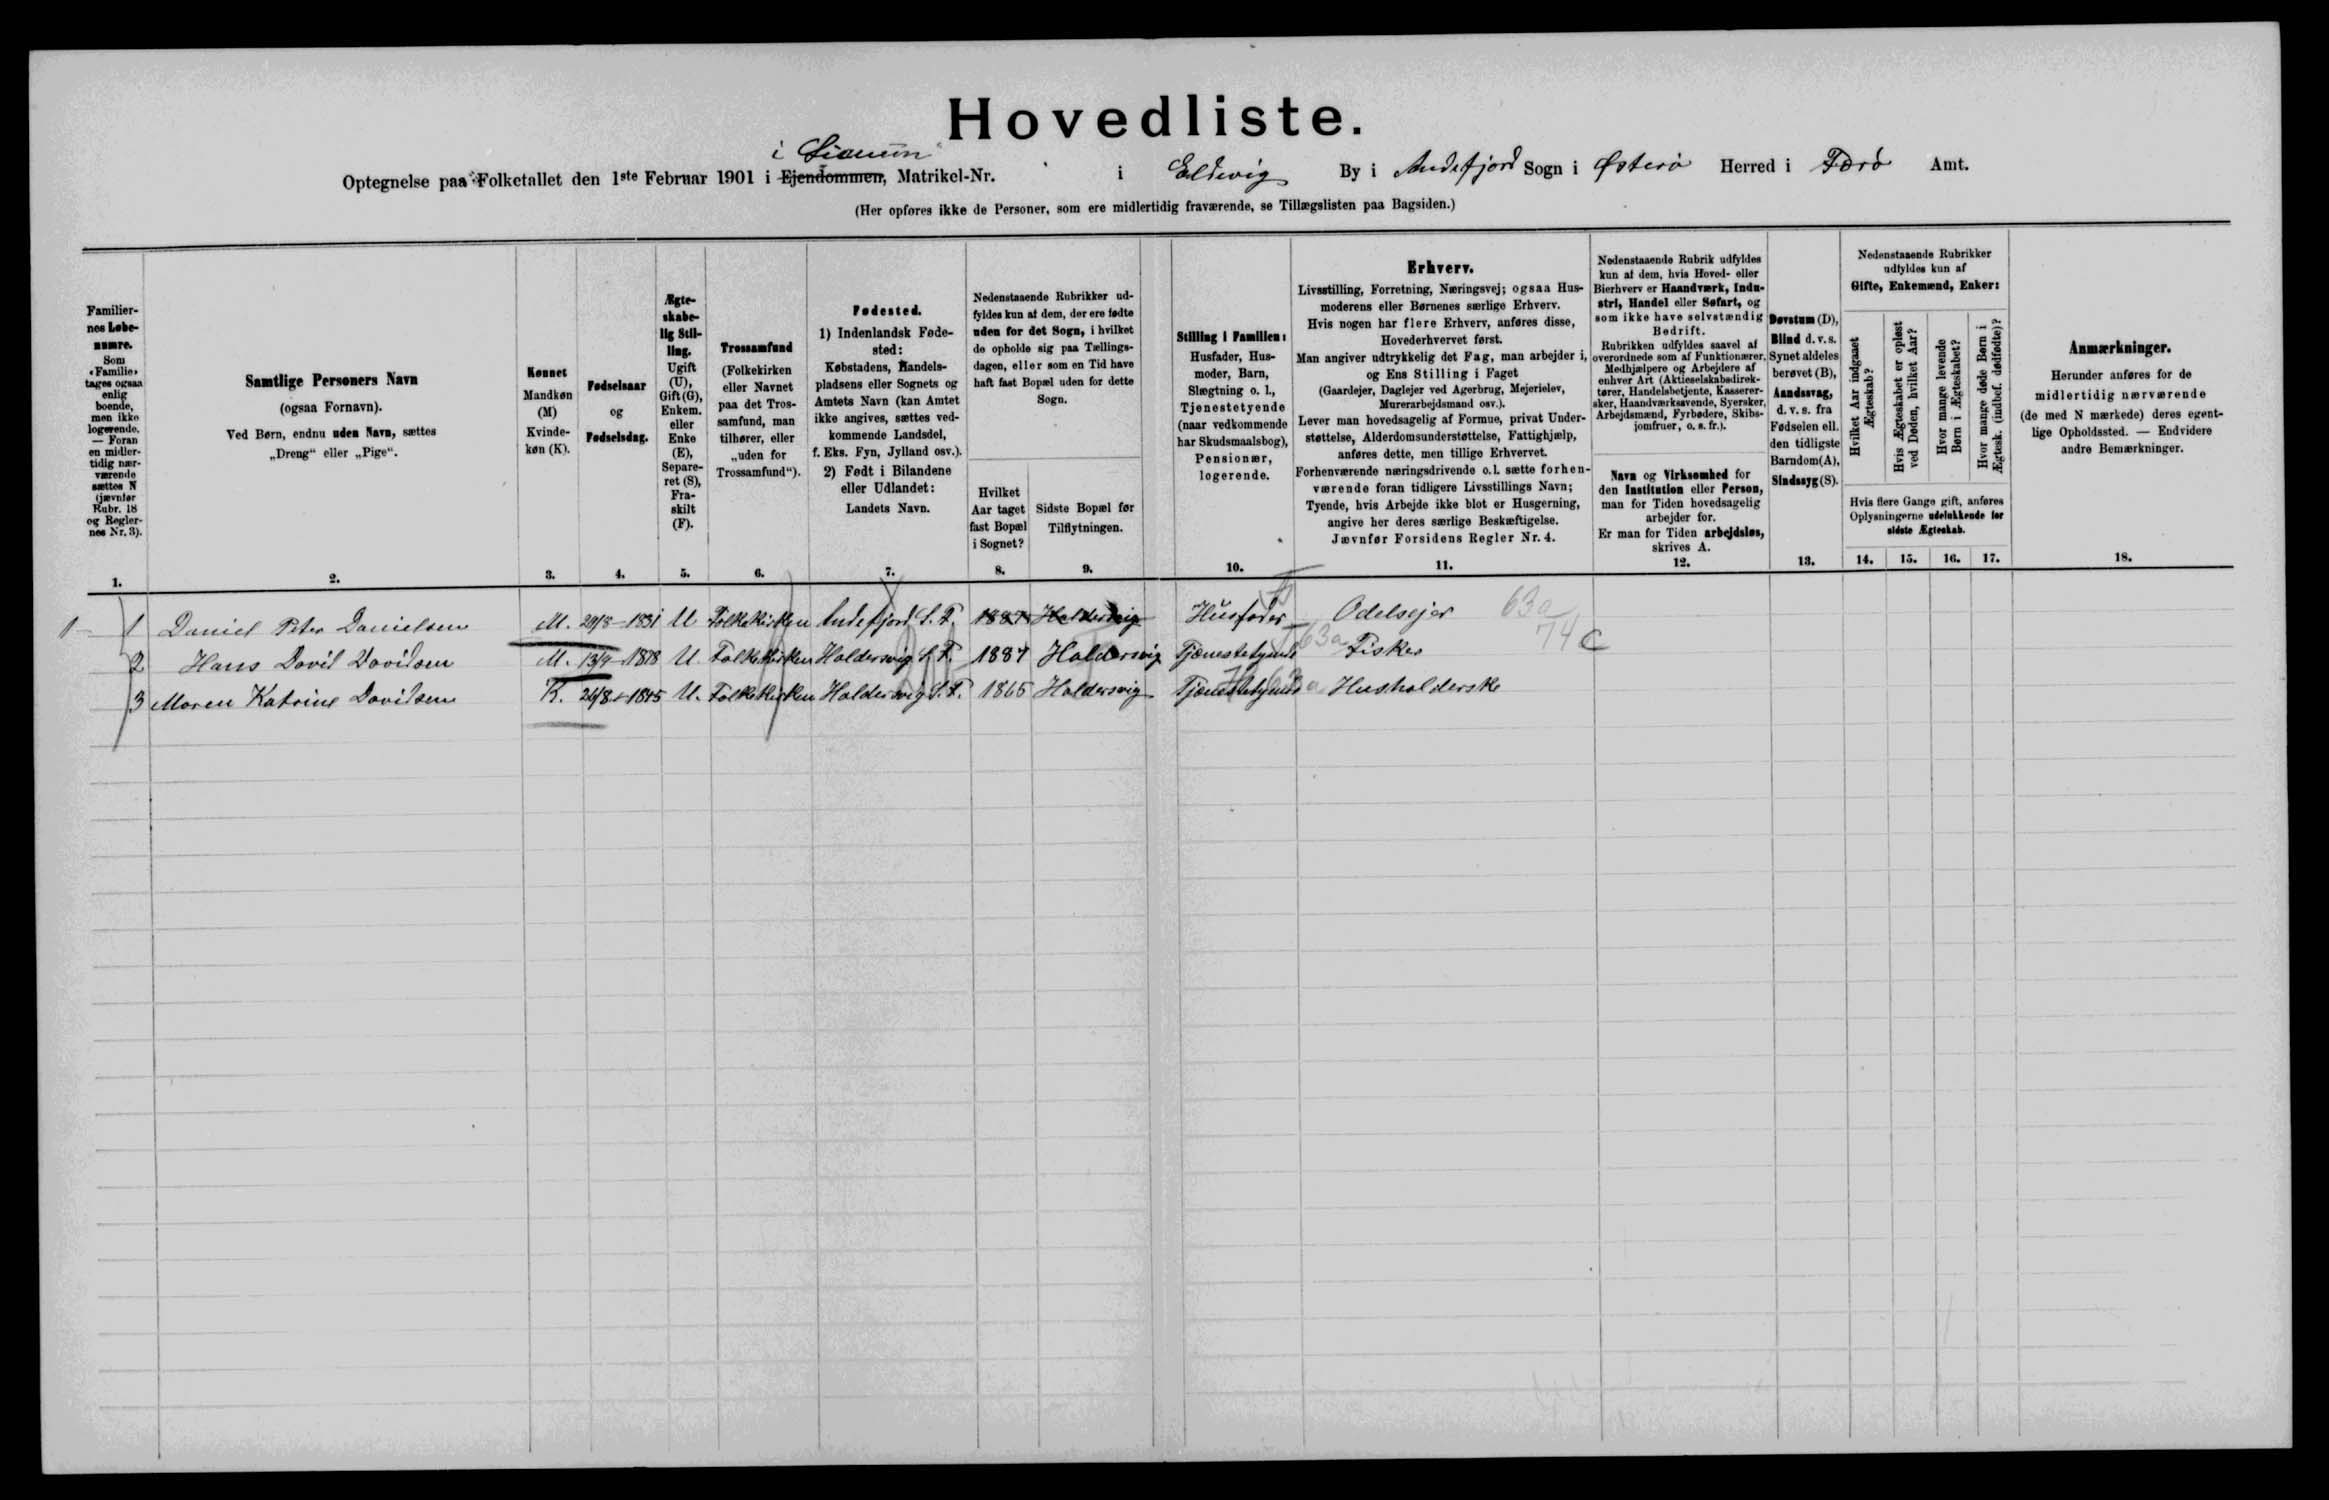 Hovedliste.
i
Optegnelse paa Folketallet den 1ste Februar 1901 i Ejendommen, Matrikel-Nr. i Eldevig By i Andefjord Sogn i Østerø Herred i Færø Amt.
(Her opføres ikke de Personer, som ere midlertidig fraværende, se Tillægslisten paa Bagsiden.)
Familier-
nes Løbe-
numre.
Som
«Familie»
tages ogsaa
enlig
boende,
men ikke
logerende.
— Foran
en midler-
tidig nær-
værende
sættes N
(jævnfør
Rubr. 18
og Regler-
nes Nr. 3).
1.
Samtlige Personers Navn
(ogsaa Fornavn).
Ved Børn, endnu uden Navn, sættes
„Dreng“ eller „Pige“.
2.
Kønnet
Mandkøn
(M)
Kvinde-
køn (K).
3.
Fødselsaar
og
Fødselsdag.
4.
Ægte-
skabe-
lig Stil-
ling.
Ugift
(U),
Gift (G),
Enkem.
eller
Enke
(E),
Separe-
ret (S),
Fra-
skilt
(F).
5.
Trossamfund
(Folkekirken
eller Navnet
paa det Tros-
samfund, man
tilhører, eller
„uden for
Trossamfund“).
6.
Fødested.
1) Indenlandsk Føde-
sted:
Købstadens, Handels-
pladsens eller Sognets og
Amtets Navn (kan Amtet
ikke angives, sættes ved-
kommende Landsdel,
f. Eks. Fyn, Jylland osv.).
2) Født i Bilandene
eller Udlandet:
Landets Navn.
7.
Nedenstaaende Rubrikker ud-
fyldes kun af dem, der ere fødte
uden for det Sogn, i hvilket
de opholde sig paa Tællings-
dagen, eller som en Tid have
haft fast Bopæl uden for dette
Sogn.
Hvilket
Aar taget
fast Bopæl
i Sognet?
8.
Sidste Bopæl før
Tilflytningen.
9.
Stilling i Familien:
Husfader, Hus-
moder, Barn,
Slægtning o. l.,
Tjenestetyende
(naar vedkommende
har Skudsmaalsbog),
Pensionær,
logerende.
10.
Erhverv.
Livsstilling, Forretning, Næringsvej; ogsaa Hus-
moderens eller Børnenes særlige Erhverv.
Hvis nogen har flere Erhverv, anføres disse,
Hovederhvervet først.
Man angiver udtrykkelig det Fag, man arbejder i,
og Ens Stilling i Faget
(Gaardejer, Daglejer ved Agerbrug, Mejerielev,
Murerarbejdsmand osv.).
Lever man hovedsagelig af Formue, privat Under-
støttelse, Alderdomsunderstøttelse, Fattighjælp,
anføres dette, men tillige Erhvervet.
Forhenværende næringsdrivende o.l. sætte forhen-
værende foran tidligere Livsstillings Navn;
Tyende, hvis Arbejde ikke blot er Husgerning,
angive her deres særlige Beskæftigelse.
Jævnfør Forsidens Regler Nr. 4.
11.
Nedenstaaende Rubrik udfyldes
kun af dem, hvis Hoved- eller
Bierhverv er Haandværk, Indu-
stri, Handel eller Søfart, og
som ikke have selvstændig
Bedrift.
Rubrikken udfyldes saavel af
overordnede som af Funktionærer,
Medhjælpere og Arbejdere af
enhver Art (Aktieselskabsdirek-
tører, Handelsbetjente, Kasserer-
sker, Haandværkssvende, Syersker,
Arbejdsmænd, Fyrbødere, Skibs-
jomfruer, o. s. fr.).
Navn og Virksomhed for
den Institution eller Person,
man for Tiden hovedsagelig
arbejder for.
Er man for Tiden arbejdsløs,
skrives A.
12.
Døvstum (D),
Blind d. v. s.
Synet aldeles
berøvet (B),
Aandssvag,
d. v. s. fra
Fødselen ell.
den tidligste
Barndom(A),
Sindssyg (S).
13.
Nedenstaaende Rubrikker
udfyldes kun af
Gifte, Enkemænd, Enker:
Hvilket Aar indgaaet
Ægteskab?
Hvis Ægteskabet er opløst
ved Døden, hvilket Aar?
Hvor mange levende
Børn i Ægteskabet?
Hvor mange døde Børn i
Ægtesk. (indbef. dødfødte)?
Hvis flere Gange gift, anføres
Oplysningerne udelukkende for
sidste Ægteskab.
14. 15. 16. 17.
Anmærkninger.
Herunder anføres for de
midlertidig nærværende
(de med N mærkede) deres egent-
lige Opholdssted. — Endvidere
andre Bemærkninger.
18.
1 1 Daniel Peter Danielsen M. 29/8 1831 U Folkekirken Andefjord S. F. 1887 Haldersvig Husfader Odelsejer 63a
2 Hans David Davidsen M. 13/9 1878 U. Folkekirken Haldersvig S. F. 1887 Haldersvig Tjænestetyende 63a Fisker 74 C
3 Maren Katrine Davidsen K. U. Folkekirken Haldersvig S. F. 1865 Haldersvig Tjænestetyende Husholderske